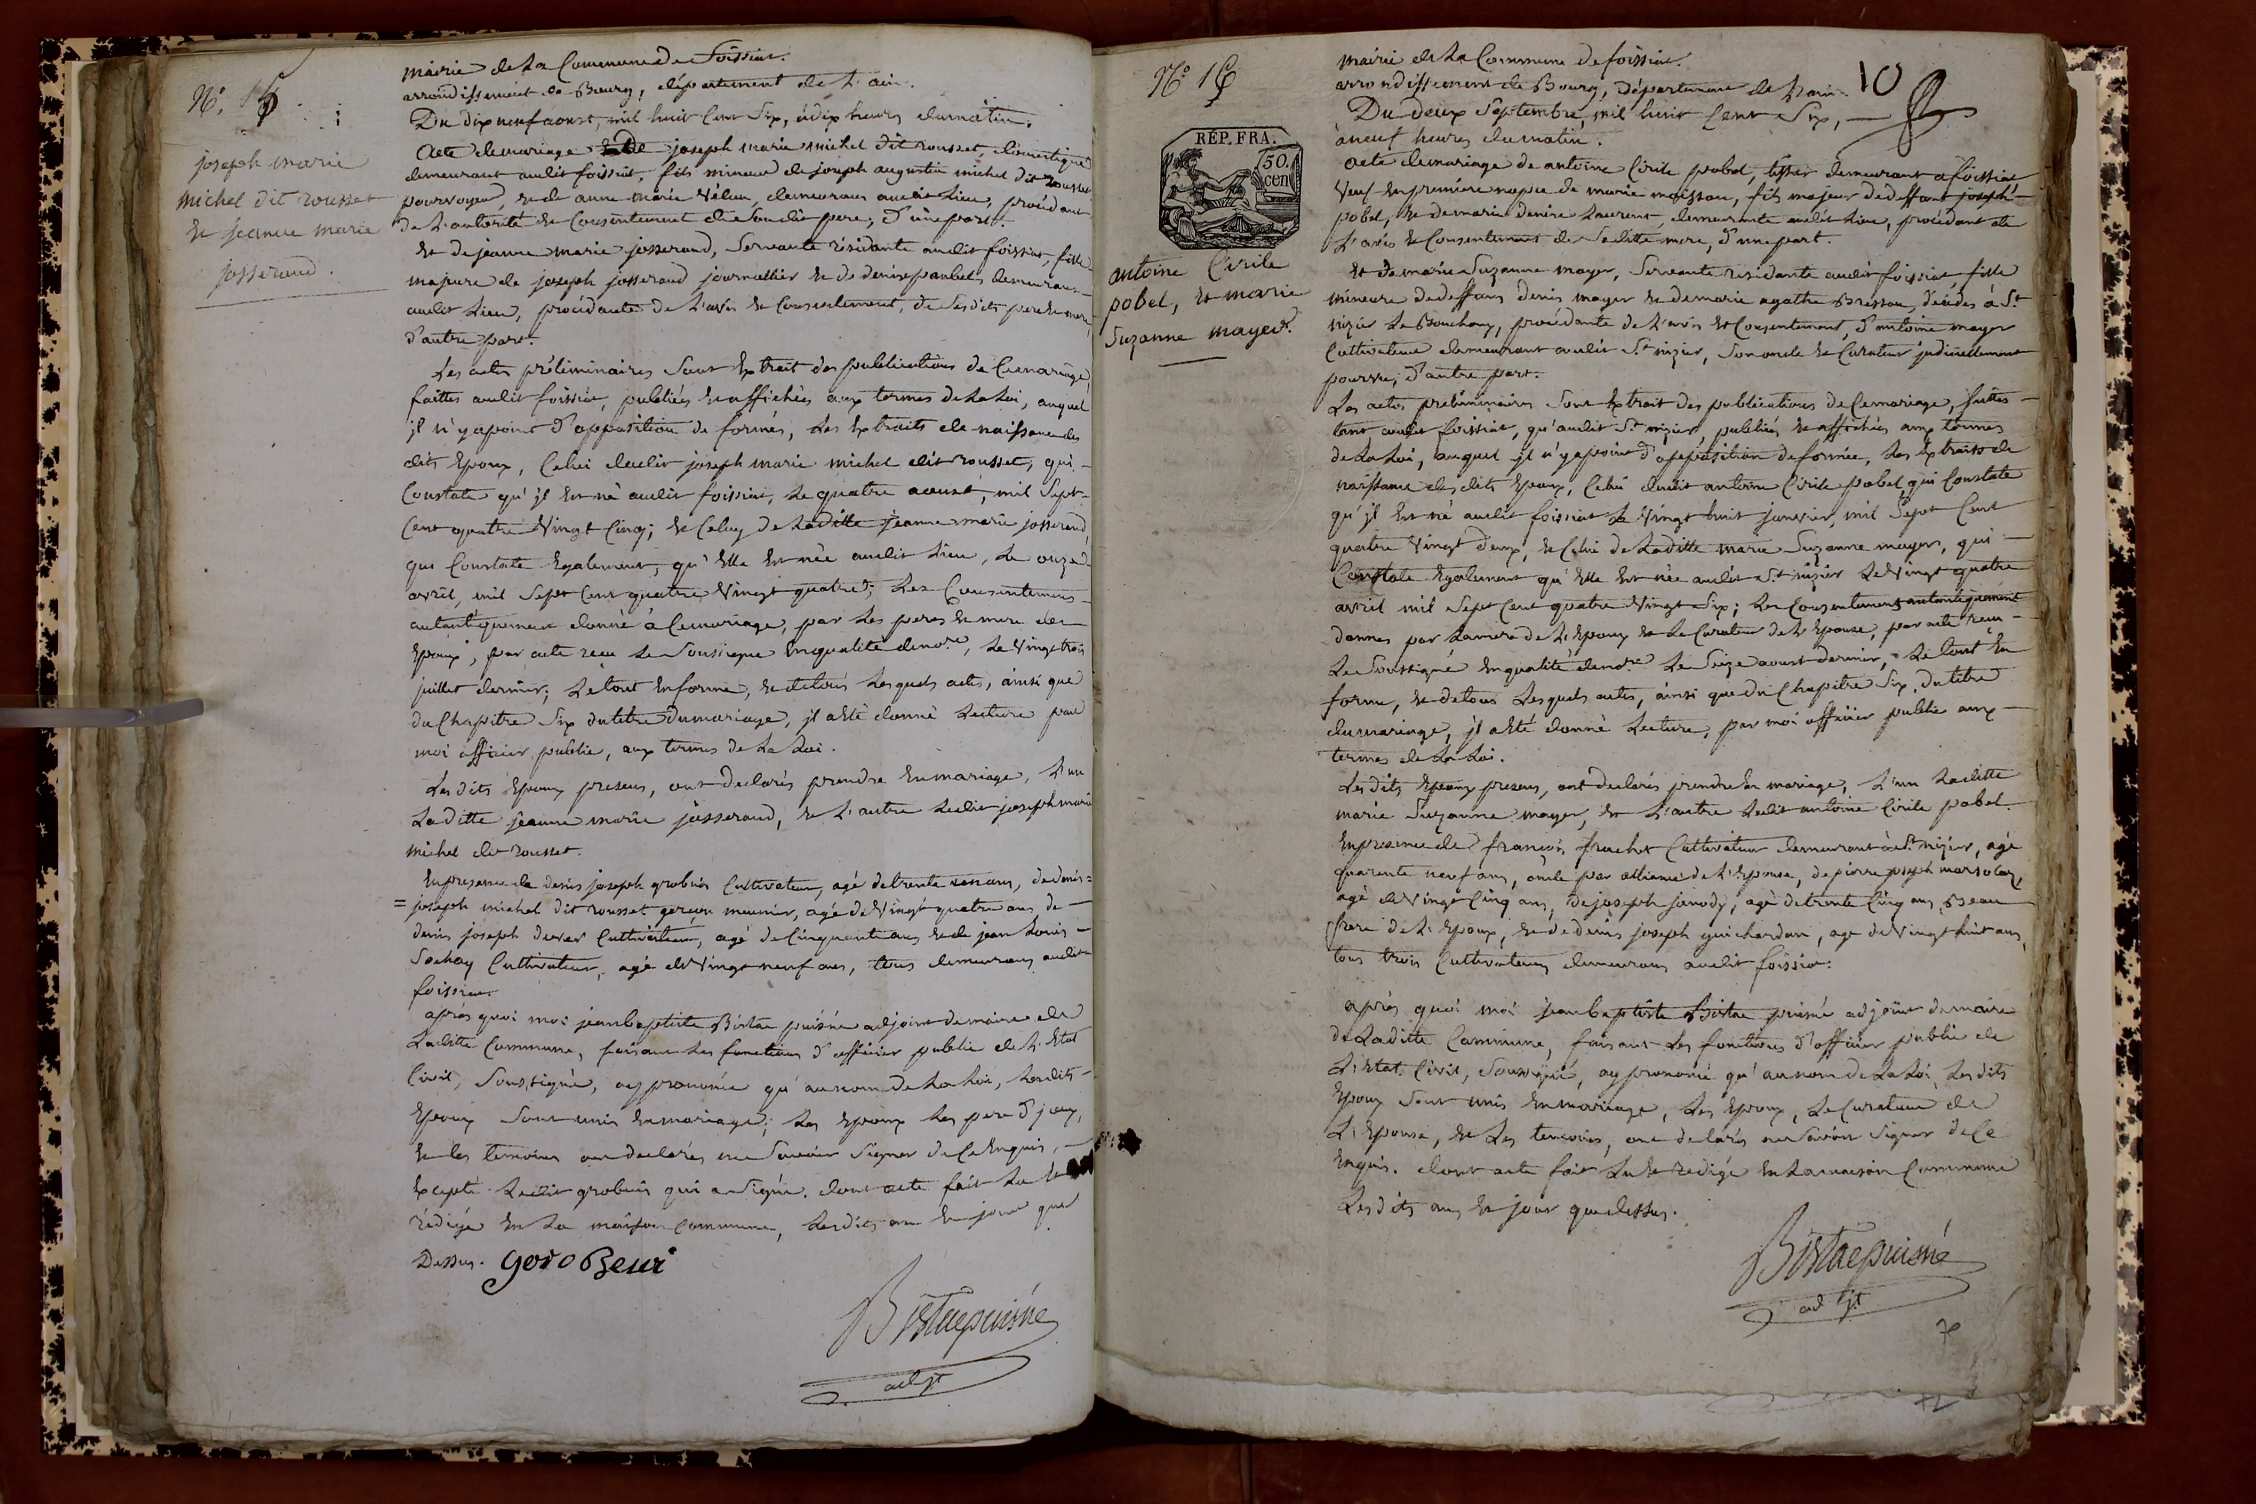 N°. 15
joseph marie
michel dit rousset
et jeanne marie
josserand.
mairie de La Commune de Foissiat.
arrondissement de Bourg, département de L'ain.
Du dix neuf aoust, mil huit Cent Six, à dix heures du matin.
Acte de mariage de joseph marie michel dit rousset, domestique
demeurant audit foissiat, fils mineur de joseph augustin michel dit rousset
pourvoyeur, et de anne marie demeurans audit Lieu, procédant
de L'autorité et Consentement de Son dit pere; d'une part.
Et de jeanne marie josserand, Servante résidante audit foissiat, fille
majeure de joseph josserand journallier et de denise paubel, demeurans
audit Lieu, procédante de L'avis et Consentement, de Ses dits pere et mere,
d'autre part.
Les actes préliminaires Sont Extrait des publications de Ce mariage,
faittes audit foissiat, publiées et affichées aux termes de La Loi, auquel
jl n'y a point d'opposition de formée, Les Extraits de naissance des
dits Epoux, Celui dudit joseph marie michel dit rousset, qui
Constate qu'jl Est né audit foissiat, Le quatre aoust, mil Sept
Cent quatre Vingt Cinq; et Celuy de Laditte jeanne marie josserand,
qui Constate Egalement, qu'Elle Est née audit Lieu, Le onze
avril, mil Sept Cent quatre Vingt quatre; Les Consentemens
autantiquement donné à Ce mariage, par Les peres et mere des
Epoux, par acte reçu Le Soussigné En qualité de no.re, Le Vingt trois
juillet dernier; Le tout En forme, et de tous Lesquels actes, ainsi que
du Chapitre Six du titre du mariage, jl a Eté donné Lecture par
moi officier public, aux termes de La Loi.
Les dits Epoux presens, ont declarés prendre En mariage, L'un
Laditte jeanne marie josserand, et L'autre Ledit joseph marie
michel dit rousset.
En presence de denis joseph grobuis Cultivateur, agé de trente ans, de denis
= joseph michel dit rousset garçon meunier, agé de Vingt quatre ans de
denis joseph Cultivateur, agé de Cinquante ans et de jean Louis
Sochay Cultivateur, agé de Vingt neuf ans, tous demeurans audit
foissiat.
après quoi moi jean baptiste puisné adjoint du maire de
Laditte Commune, faisant Les fonctions d'officier public de L'Etat
Civil, Soussigné, ay prononcé qu'au nom de La Loi, Lesdits
Epoux Sont unis En mariage; Les Epoux Les pere d'jceux,
et les temoins ont declarés ne Savoir Signer de Ce Enquis,
Excepté Ledit grobuis qui a Signé. dont acte fait Lu et
rédigé En La maison Commune, Les dits an Et jour que
Dessus.
puisné
adjt
N°. 16
RÉP. FRA.
50.
cen
antoine Cirile
pobel, et marie
Suzanne mayer.
mairie de La Commune de foissiat.
10
arrondissement de Bourg, Département de L'ain.
Du deux Septembre, mil huit Cent Six,
à neuf heures du matin.
acte de mariage de antoine Cirile pobel, tisser demeurant à foissiat
Veuf En premiere nopce de marie moisson, fils majeur de deffunt joseph
pobel, et de marie denise Laurent, demeurante audit Lieu, procédant de
L'avis et Consentement de Saditte mere, d'une part.
Et de marie Suzanne mayer, Servante residante audit foissiat, fille
mineure de deffuns denis mayer et de marie agathe Bresson, décédés à St.
nizier Le Bouchoux, procédante de L'avis et Consentement, d'antoine mayer
Cultivateur demeurant audit St. nizier, Son oncle et Curateur judiciellement
pourvu; d'autre part.
Les actes préliminaires Sont Extrait des publications de Ce mariage, faittes
tant audit foissiat, qu'audit St. nizier, publiées et affichées aux termes
de La Loi, auquel jl n'y a point d'opposition de formée, Les Extraits de
naissance des dits Epoux, Celui dudit antoine Cirile pobel, qui Constate
qu'jl Est né audit foissiat Le Vingt huit janvier, mil Sept Cent
quatre Vingt deux, et Celui de Laditte marie Suzanne mayer, qui
Constate Egalement qu'Elle Est née audit St. nizier Le Vingt quatre
avril mil Sept Cent quatre Vingt Six; Les Consentemens autantiquement
donnés par La mere de L'Epoux et Le Curateur de L'Epouse, par acte reçu
Le Soussigné En qualité de no.re Le Seize aoust dernier, Le tout En
forme, et de tous Lesquels actes, ainsi que du Chapitre Six, du titre
du mariage, jl a Eté donné Lecture, par moi officier public aux
termes de La Loi.
Les dits Epoux presens, ont declarés prendre En mariage, L'un Laditte
marie Suzanne mayer, et L'autre Ledit antoine Cirile pobel.
En presence de françois Cultivateur demeurant à St. nizier, agé
quarente neuf ans, oncle par alliance de L'Epouse, de pierre joseph
agé de Vingt Cinq ans, de joseph janody, agé de trente Cinq ans, Beau
frere de L'Epoux, et de denis joseph guichardan, agé de Vingt huit ans,
tous trois Cultivateurs demeurans audit foissiat.
après quoi moi jean baptiste puisné adjoint du maire
de Laditte Commune, faisant Les fonctions d'officier public de
L'Etat Civil, Soussigné, ay prononcé qu'au nom de La Loi, Les dits
Epoux Sont unis En mariage, Les Epoux, Le Curateur de
L'Epouse, et Les temoins, ont declarés ne Savoir Signer de Ce
Enquis. dont acte fait Lu et redigé En La maison Commune
Les dits an Et jour que dessus.
puisné
adjt